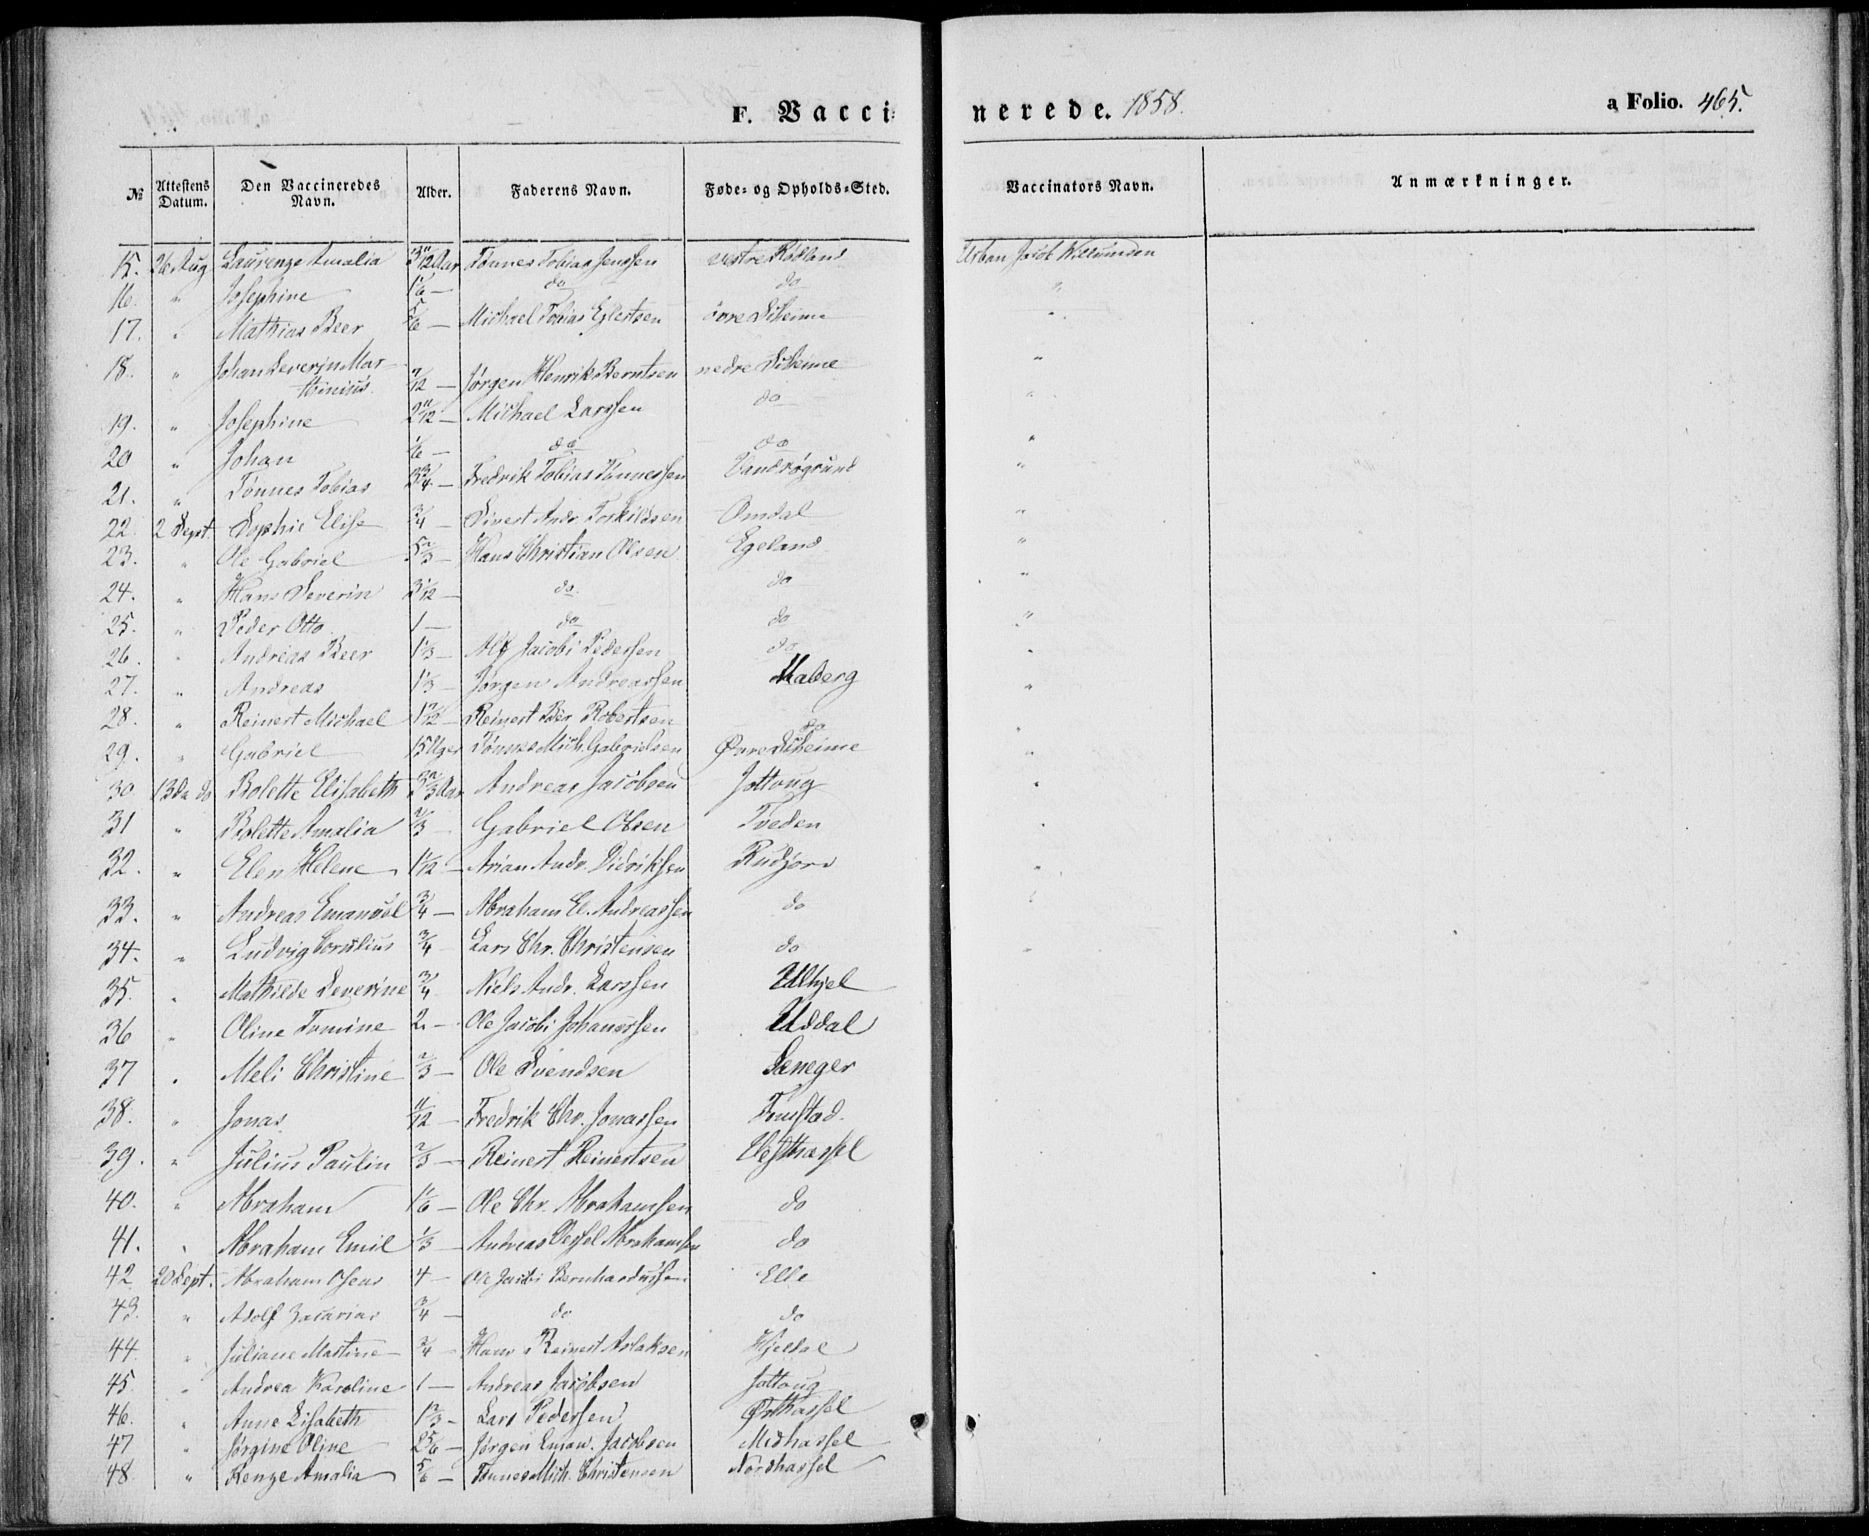 F. Vaccinerede. 1858.
a Folio. 465.
№ | Attestens Datum. | Den Vaccineredes Navn. | Alder. | Faderens Navn. | Føde- og Opholds-Sted. | Vaccinators Navn. | Anmærkninger.
15. 26 Aug Laurenze Amalia 3 11/12 Aar Tønnes Tobias Jenssen vestre Rødland Urban Jacob
16. " Josephine 1 1/6 — do do "
17. " Mathias Beer 5/6 — Michael Tobias Eilertsen övre "
18. " Johan Severin Mar-
thinius 7/12 — Jørgen Henrik Berntsen nedre "
19. " Josephine 2 11/12 — Michael Larssen do "
20 " Johan 1/6 — do do "
21. " Tönnes Tobias 3 3/4 — Fredrik Tobias Tönnessen Vandrøgrund "
22. 2 Sept. Sophie Elise 3/4 — Sivert Andr. Torkildsen Omdal "
23. " Ole Gabriel 5 2/3 — Hans Christian Olsen Egeland "
24. " Hans Severin 3 1/12 — do do "
25. " Peder Otto 1 — do do "
26. " Andreas Beer 1 1/3 — Alf Jacobi Pedersen do "
27. " Andreas 1 1/3 — Jørgen Andreassen Maberg "
28. " Reinert Michael 1 7/12 — Reinert Ber. Robertsen do "
29. " Gabriel 15 Uger Tønnes Mich. Gabrielsen Øvre "
30 13de do Bolette Elisabeth 3 2/3 Aar Andreas Jacobsen Jottoug "
31 " Bolette Amalia 2/3 — Gabriel Olsen Tveden "
32. " Elen Helene 1 1/12 — Arian Andr. Didriksen Rudjord "
33. " Andreas Emanuel 3/4 — Abraham El. Andreassen do "
34. " Ludvig Cornelius 3/4 — Lars Chr. Christensen do "
35. " Mathilde Severine 3/4 Niels Andr. Larssen Ulhjel
36 " Oline Tomine 2 — Ole Jacobi Johanssen Uddal
37 " Meli Christine 2/3 — Ole Svendsen Sæneger
38. " Jonas 11/12 — Fredrik Chr. Jonassen
39. " Julius Paulin 2/3 — Reinert Reinertsen Vesthassel
40. " Abraham 1 1/6 — Ole Chr. Abrahamsen do
41. " Abraham Emil 1/3 — Andreas Vessel Abrahamsen do
42 20 Sept. Abraham Oseas 4 — Ole Jacobi Bernhardussen Elle
43. " Adolf Zacarias 3/4 — do do
44. " Juliane Martine 3/4 — Hans Reinert Aslaksen Hjeldal
45 " Andrea Karoline 1 — Andreas Jacobsen Jottoug
46. " Anne Lisabeth 1 2/3 — Lars Pedersen Østhassel
47 " Jørgine Oline 2 5/6 — Jørgen Eman. Jacobsen Midhassel
48 " Renze Amalia 5/6 — Tönnes Mich. Christensen Nordhassel